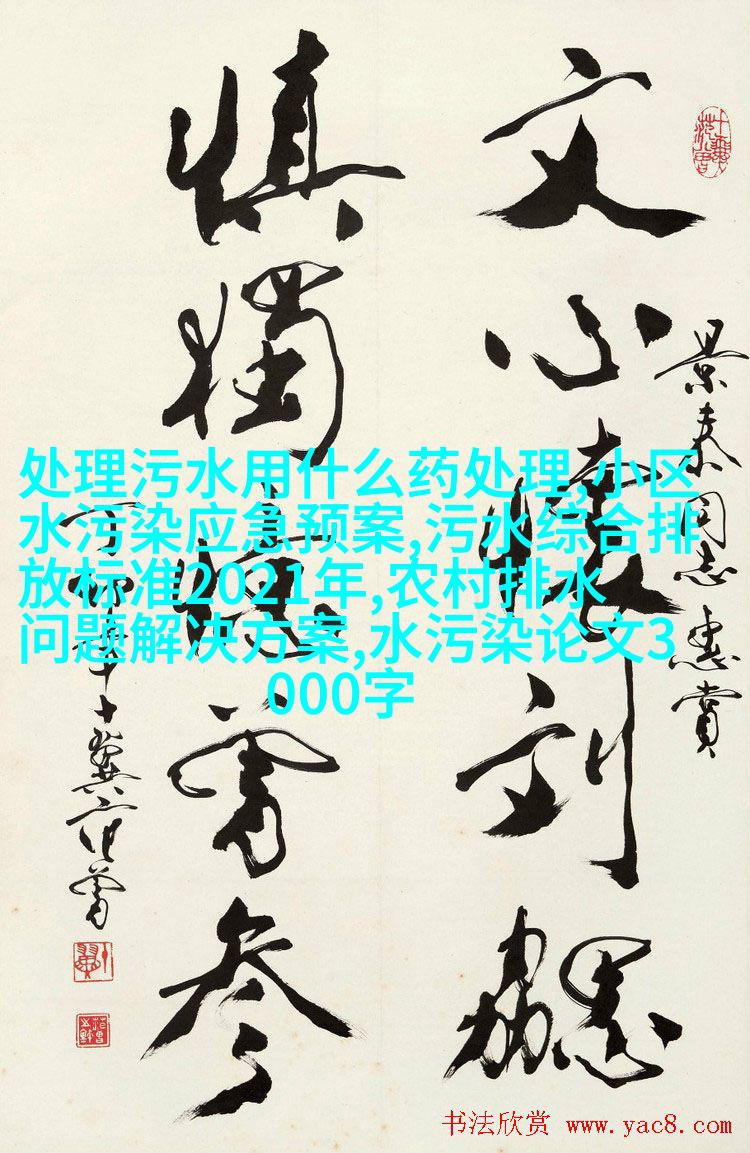 景泰同志惠賞
文心懷刘勰
慎獨曾参
丁卯十翼范曾
处理污水用什么药处理,小区
水污染应急预案,污水综合排
放标准2021年,农村排水
问题解决方案,水污染论文3
000字
书法欣赏 www.yac8.com